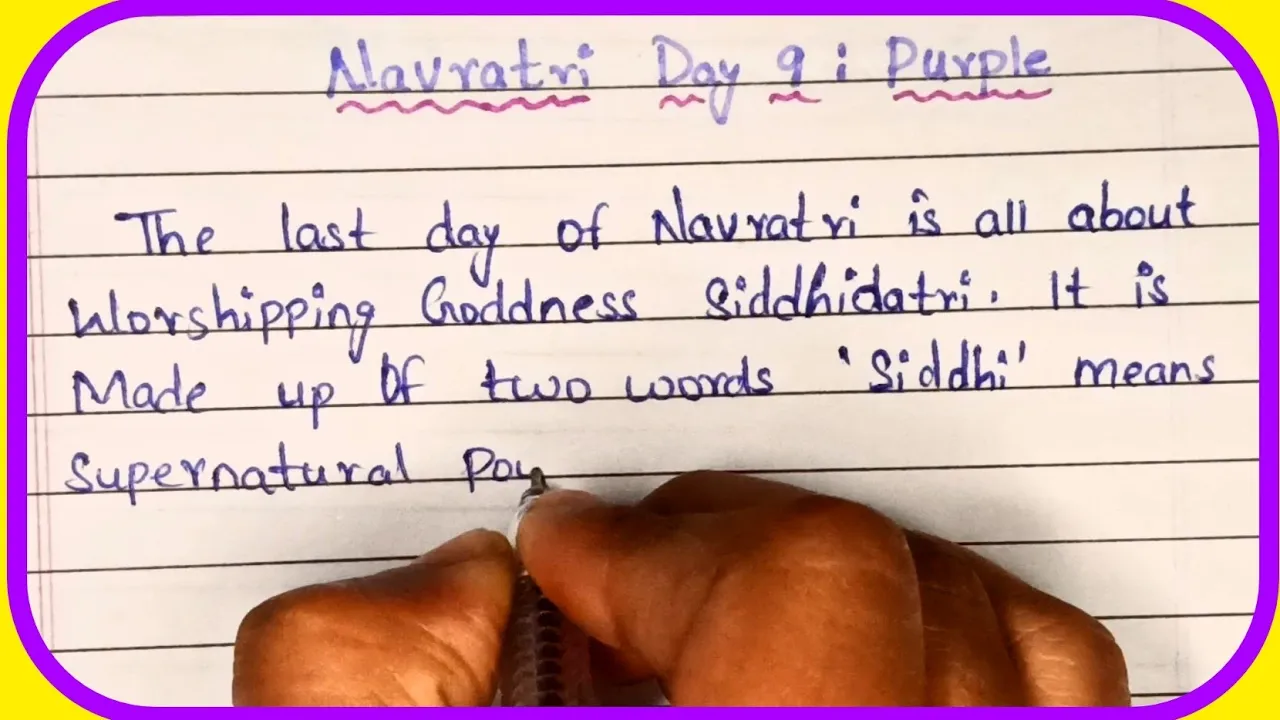 Navratri Day 9 : Purple
The last day of Navratri is all about
Worshipping Goddness Siddhidatri. It is
Made up Of two words 'Siddhi' means
Supernatural Pow